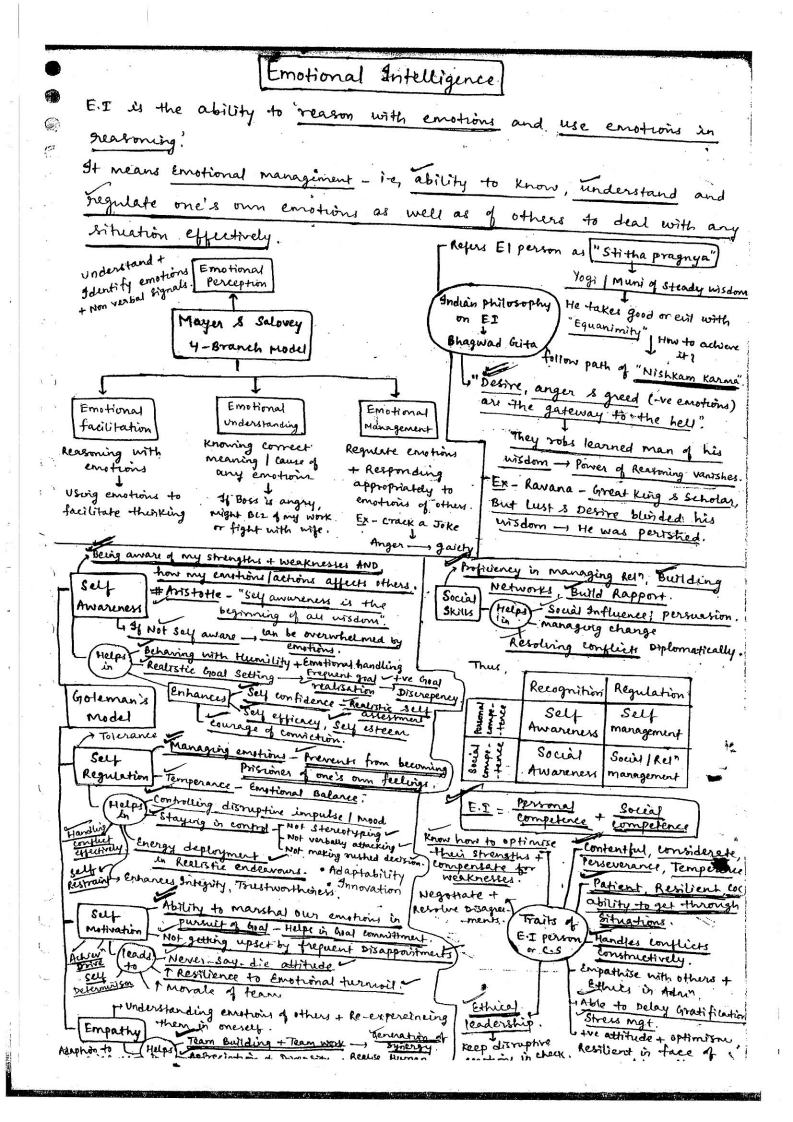 Emotional Intelligence
E.I is the ability to 'reason with emotions and use emotions in
reasoning.'
It means Emotional management - i.e, ability to know, understand and
regulate one's own emotions as well as of others to deal with any
situation effectively.
Understand +
Identify emotions
+ Non verbal signals.
Emotional
Perception
Mayer & Salovey
4-Branch Model
Emotional
facilitation
Reasoning with
emotions
Using emotions to
facilitate thinking
Emotional
Understanding
Knowing correct
meaning / cause of
any emotion
If Boss is angry,
might Bcz of my work
or fight with wife.
Emotional
Management
Regulate emotions
+ Responding
appropriately to
emotions of others.
Ex - Crack a Joke
Anger → gaiety
Refers EI person as "Stitha pragnya"
Yogi / Muni of Steady wisdom
Indian philosophy
on EI
Bhagwad Gita
He takes good or evil with
"Equanimity"
How to achieve
it?
follow path of "Nishkam Karma".
"Desire, anger & greed (-ve emotions)
are the gateway to the hell".
They robs learned man of his
wisdom → Power of Reasoning vanishes.
Ex - Ravana - Great King & Scholar,
But Lust & Desire blinded his
wisdom → He was perished.
Goleman's
Model
Self
Awareness
Being aware of my strengths + weaknesses AND
how my emotions/actions affects others.
# Aristotle - "Self awareness is the
beginning of all wisdom".
If Not self aware → can be overwhelmed by
emotions.
Helps
in
Behaving with Humility + Emotional handling
Realistic Goal Setting → Frequent goal
realisation
+ve Goal
Discrepency
Enhances
Self confidence - Realistic self
assessment
Self efficacy, Self esteem
courage of conviction.
Tolerance
Self
Regulation
Managing emotions - Prevents from becoming
Prisioner of one's own feelings.
Temperance - Emotional Balance.
Helps
in
Controlling disruptive impulse / Mood
Staying in control
Not Stereotyping
Not verbally attacking
Not making rushed decision.
Handling
conflict
effectively
Energy deployment
in Realistic endeavours.
• Adaptability
• Innovation
Self
Restraint
Enhances Integrity, Trustworthiness
Self
Motivation
Ability to marshal our emotions in
pursuit of Goal - Helps in Goal commitment.
Not getting upset by frequent Disappointments
Achiev
Drive
Self
Determination
leads
to
Never-say-die attitude
↑ Resilience to Emotional turmoil
↑ Morale of team
Empathy
Understanding emotions of others + Re-expereincing
them in oneself.
Adaption to
Helps
Team Building + Team work → Generation of
Synergy
Realise Human
Social
Skills
Proficiency in managing Relⁿ, Building
Networks, Build Rapport.
Helps
in
Social Influence; persuasion.
managing change
Resolving conflicts Diplomatically.
Thus,
Recognition Regulation
Personal
compe-
tence
Self
Awareness
Self
management
Social
compe-
tence
Social
Awareness
Social / Relⁿ
management
E.I = Personal
Competence + Social
Competence
Traits of
E.I person
or C.S
Know how to optimise
their strengths +
compensate for
weaknesses.
Negotiate +
Resolve Disagree-
ments.
Ethical
leadership.
Keep disruptive
emotions in check.
Contentful, considerate,
Perseverance, Temperence
Patient, Resilient, COC
ability to get through
Situations.
Handles conflicts
Constructively.
Empathise with others +
Ethics in Admⁿ.
Able to Delay Gratification
Stress mgt.
+ve attitude + optimism,
Resilient in face of